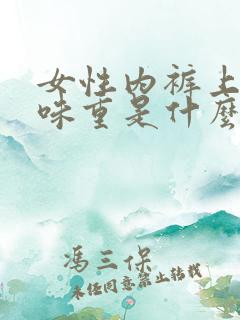 女性内裤上
味重是什麼
冯三保
未经同意禁止转载